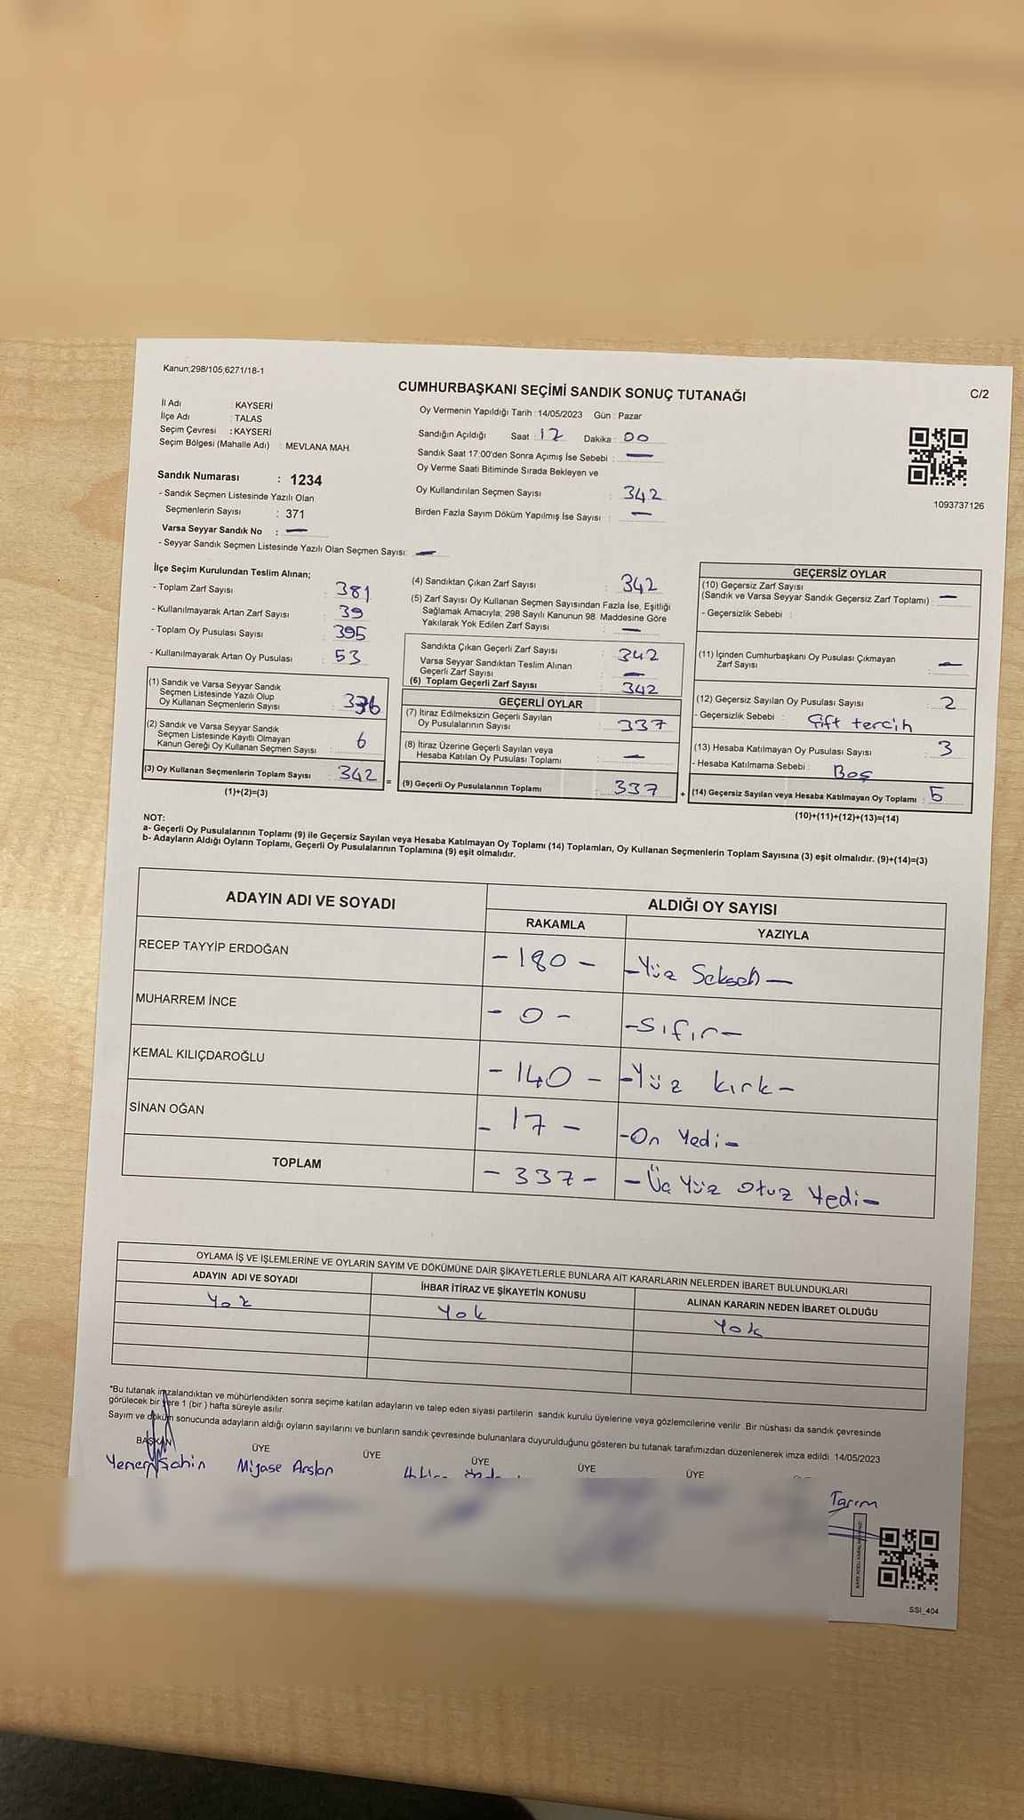 Kanun:298/105,6271/18-1
CUMHURBAŞKANI SEÇİMİ SANDIK SONUÇ TUTANAĞI
C/2
İl Adı : KAYSERİ
İlçe Adı : TALAS
Seçim Çevresi : KAYSERİ
Seçim Bölgesi (Mahalle Adı) : MEVLANA MAH.
Sandık Numarası : 1234
- Sandık Seçmen Listesinde Yazılı Olan
Seçmenlerin Sayısı : 371
Varsa Seyyar Sandık No : —
- Seyyar Sandık Seçmen Listesinde Yazılı Olan Seçmen Sayısı: —
Oy Vermenin Yapıldığı Tarih : 14/05/2023 Gün : Pazar
Sandığın Açıldığı Saat : 17 Dakika : 00
Sandık Saat 17:00'den Sonra Açımış İse Sebebi : —
Oy Verme Saati Bitiminde Sırada Bekleyen ve
Oy Kullandırılan Seçmen Sayısı : 342
Birden Fazla Sayım Döküm Yapılmış İse Sayısı : —
1093737126
İlçe Seçim Kurulundan Teslim Alınan;
- Toplam Zarf Sayısı : 381
- Kullanılmayarak Artan Zarf Sayısı : 39
- Toplam Oy Pusulası Sayısı : 395
- Kullanılmayarak Artan Oy Pusulası : 53
(1) Sandık ve Varsa Seyyar Sandık
Seçmen Listesinde Yazılı Olup
Oy Kullanan Seçmenlerin Sayısı : 336
(2) Sandık ve Varsa Seyyar Sandık
Seçmen Listesinde Kayıtlı Olmayan
Kanun Gereği Oy Kullanan Seçmen Sayısı : 6
(3) Oy Kullanan Seçmenlerin Toplam Sayısı : 342 =
(1)+(2)=(3)
(4) Sandıktan Çıkan Zarf Sayısı : 342
(5) Zarf Sayısı Oy Kullanan Seçmen Sayısından Fazla İse, Eşitliği
Sağlamak Amacıyla; 298 Sayılı Kanunun 98. Maddesine Göre
Yakılarak Yok Edilen Zarf Sayısı : —
Sandıkta Çıkan Geçerli Zarf Sayısı : 342
Varsa Seyyar Sandıktan Teslim Alınan
Geçerli Zarf Sayısı : —
(6) Toplam Geçerli Zarf Sayısı : 342
GEÇERLİ OYLAR
(7) İtiraz Edilmeksizin Geçerli Sayılan
Oy Pusulalarının Sayısı : 337
(8) İtiraz Üzerine Geçerli Sayılan veya
Hesaba Katılan Oy Pusulası Toplamı : —
(9) Geçerli Oy Pusulalarının Toplamı : 337 +
GEÇERSİZ OYLAR
(10) Geçersiz Zarf Sayısı
(Sandık ve Varsa Seyyar Sandık Geçersiz Zarf Toplamı) : —
- Geçersizlik Sebebi :
(11) İçinden Cumhurbaşkanı Oy Pusulası Çıkmayan
Zarf Sayısı : —
(12) Geçersiz Sayılan Oy Pusulası Sayısı : 2
- Geçersizlik Sebebi : Çift tercih
(13) Hesaba Katılmayan Oy Pusulası Sayısı : 3
- Hesaba Katılmama Sebebi : Boş
(14) Geçersiz Sayılan veya Hesaba Katılmayan Oy Toplamı : 5
(10)+(11)+(12)+(13)=(14)
NOT:
a- Geçerli Oy Pusulalarının Toplamı (9) ile Geçersiz Sayılan veya Hesaba Katılmayan Oy Toplamı (14) Toplamları, Oy Kullanan Seçmenlerin Toplam Sayısına (3) eşit olmalıdır. (9)+(14)=(3)
b- Adayların Aldığı Oyların Toplamı, Geçerli Oy Pusulalarının Toplamına (9) eşit olmalıdır.
ADAYIN ADI VE SOYADI
ALDIĞI OY SAYISI
RAKAMLA YAZIYLA
RECEP TAYYİP ERDOĞAN -180- -Yüz Seksen-
MUHARREM İNCE -0- -Sıfır-
KEMAL KILIÇDAROĞLU -140- -Yüz kırk-
SİNAN OĞAN -17- -On Yedi-
TOPLAM -337- -Üç Yüz Otuz Yedi-
OYLAMA İŞ VE İŞLEMLERİNE VE OYLARIN SAYIM VE DÖKÜMÜNE DAİR ŞİKAYETLERLE BUNLARA AİT KARARLARIN NELERDEN İBARET BULUNDUKLARI
ADAYIN ADI VE SOYADI İHBAR İTİRAZ VE ŞİKAYETİN KONUSU ALINAN KARARIN NEDEN İBARET OLDUĞU
Yok Yok Yok
*Bu tutanak imzalandıktan ve mühürlendikten sonra seçime katılan adayların ve talep eden siyasi partilerin sandık kurulu üyelerine veya gözlemcilerine verilir. Bir nüshası da sandık çevresinde
görülecek bir yere 1 (bir) hafta süreyle asılır.
Sayım ve döküm sonucunda adayların aldığı oyların sayılarını ve bunların sandık çevresinde bulunanlara duyurulduğunu gösteren bu tutanak tarafımızdan düzenlenerek imza edildi. 14/05/2023
BAŞKAN ÜYE ÜYE ÜYE ÜYE ÜYE
Şahin Arslan
Tarım
SSI_404